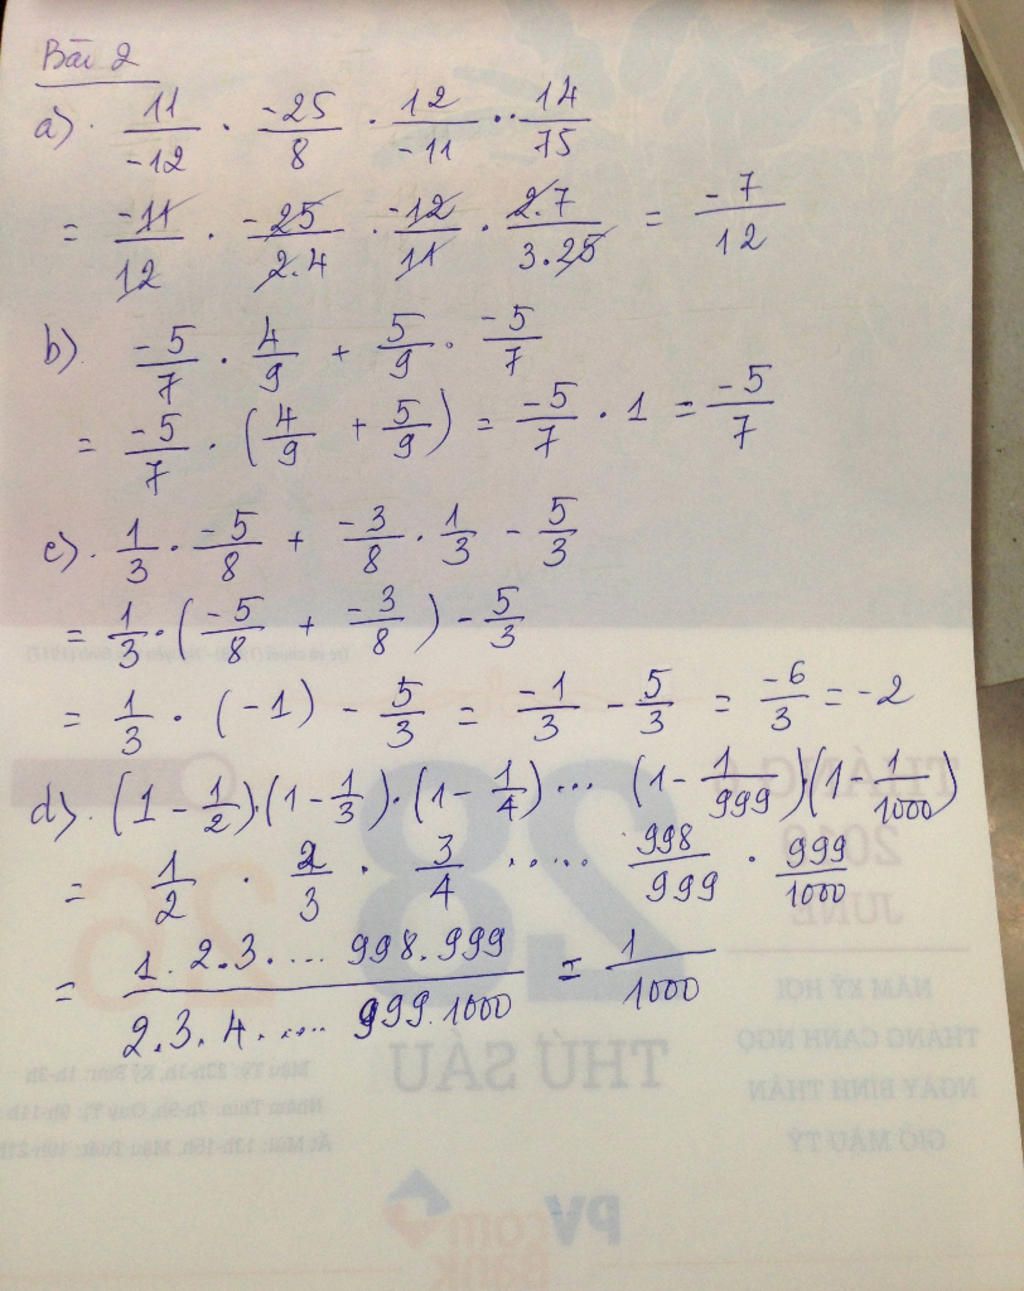 Bài 2
a) 11/-12 . -25/8 . 12/-11 . 14/75
= -11/12 . -25/2.4 . -12/11 . 2.7/3.25 = -7/12
b) -5/7 . 4/9 + 5/9 . -5/7
= -5/7 . (4/9 + 5/9) = -5/7 . 1 = -5/7
c) 1/3 . -5/8 + -3/8 . 1/3 - 5/3
= 1/3 . (-5/8 + -3/8) - 5/3
= 1/3 . (-1) - 5/3 = -1/3 - 5/3 = -6/3 = -2
d) (1 - 1/2).(1 - 1/3).(1 - 1/4)... (1 - 1/999).(1 - 1/1000)
= 1/2 . 2/3 . 3/4 ..... 998/999 . 999/1000
= 1.2.3. ... 998.999/2.3.4. .... 999.1000 = 1/1000
THÁNG 6
28
2018
JUNE
25
NĂM KỶ HỢI
THÁNG CANH NGỌ
THỨ SÁU
NGÀY BÍNH THÂN
GIỜ MẬU TÝ
PV
com
Bank